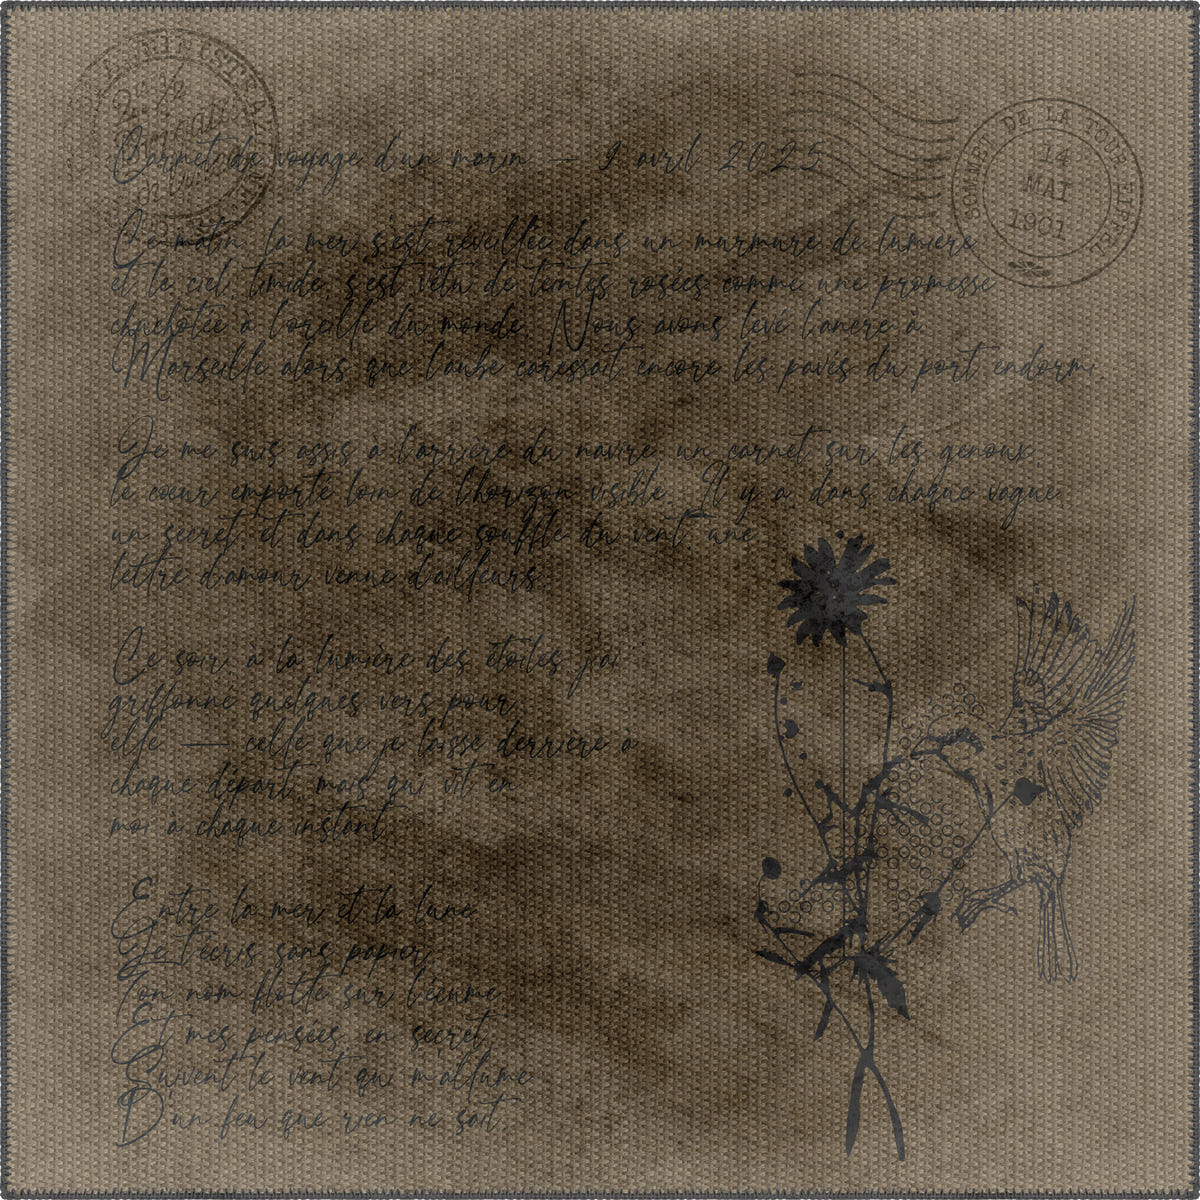 Carnet de voyage d'un marin — 9 avril 2025
SOMMET DE LA TOUR EIFFEL
14
MAI
1901
Ce matin, la mer s'est réveillée dans un murmure de lumière
et le ciel, timide, s'est vêtu de teintes rosées comme une promesse
chuchotée à l'oreille du monde. Nous avons levé l'ancre à
Marseille alors que l'aube caressait encore les pavés du port endormi.
Je me suis assis à l'arrière du navire, un carnet sur les genoux
le cœur emporté loin de l'horizon visible. Il y a dans chaque vague
un secret, et dans chaque souffle du vent, une
lettre d'amour venue d'ailleurs.
Ce soir, à la lumière des étoiles, j'ai
griffonné quelques vers pour
elle — celle que je laisse derrière à
chaque départ, mais qui vit en
moi à chaque instant.
Entre la mer et la lune
Je t'écris sans papier,
Ton nom flotte sur l'écume
Et mes pensées, en secret,
Suivent le vent qui m'allume
D'un feu que rien ne sait.